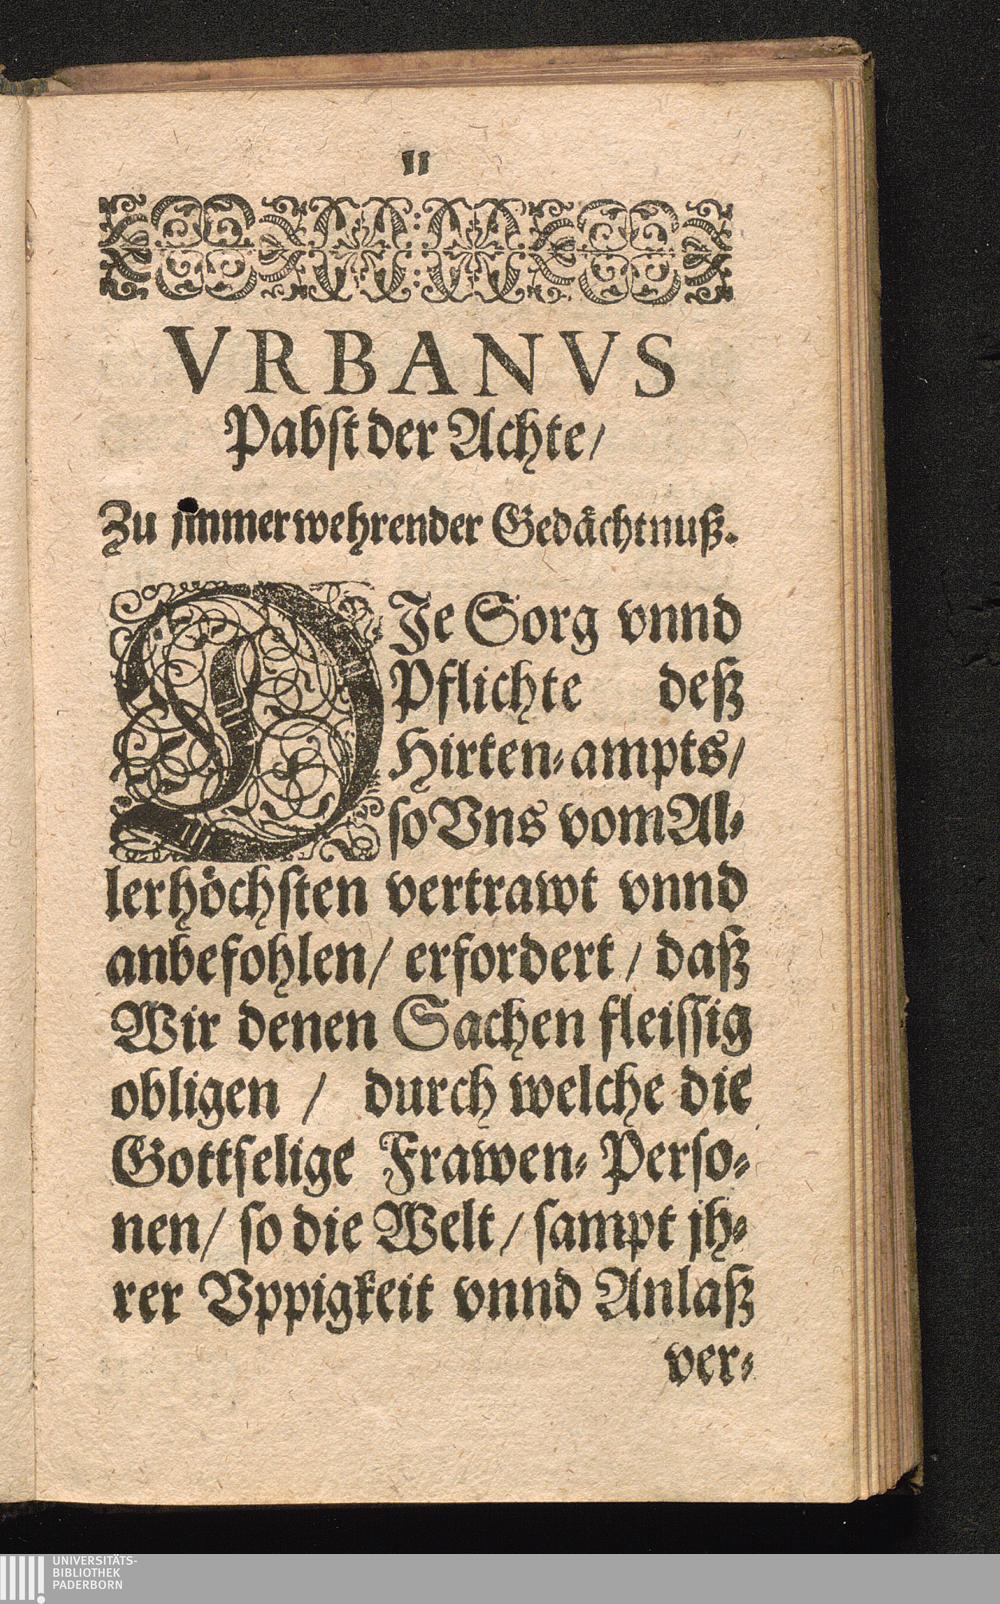 11
VRBANVS
Pabst der Achte/
Zu jmmerwehrender Gedächtnuß.
DIe Sorg vnnd
Pflichte deß
Hirten-ampts/
so Vns vom Al-
lerhöchsten vertrawt vnnd
anbefohlen/ erfordert/ daß
Wir denen Sachen fleissig
obligen / durch welche die
Gottselige Frawen-Perso-
nen/ so die Welt/ sampt jh-
rer Vppigkeit vnnd Anlaß
ver-
UNIVERSITÄTS-
BIBLIOTHEK
PADERBORN